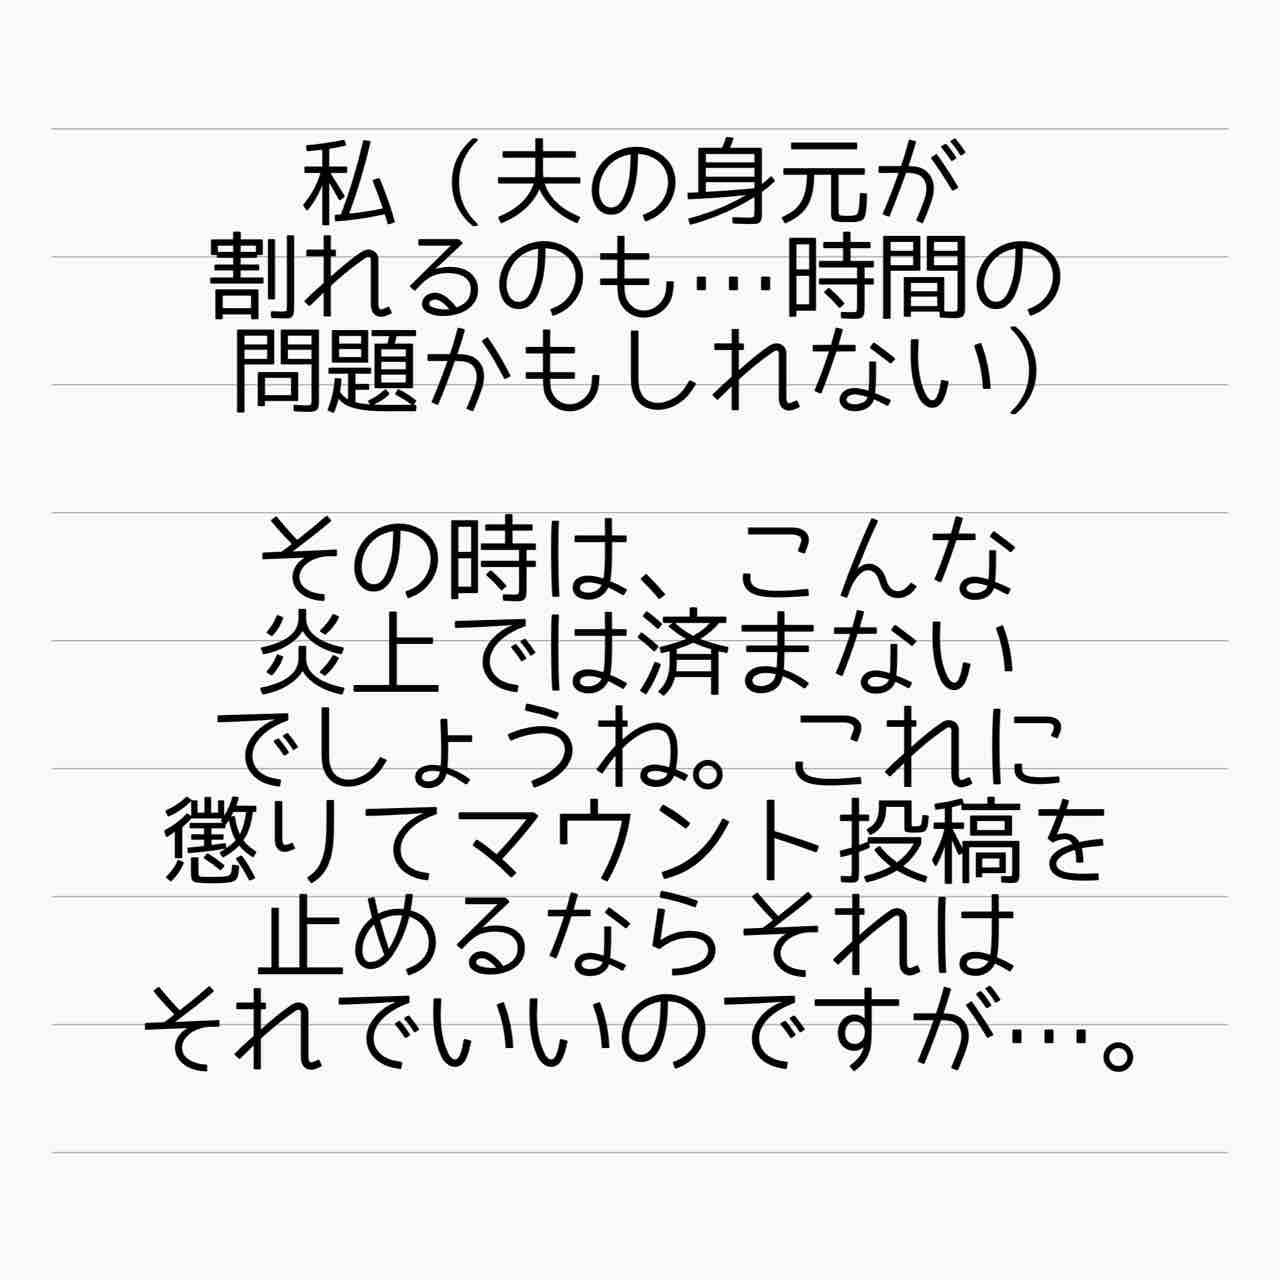 私（夫の身元が
割れるのも…時間の
問題かもしれない）
その時は、こんな
炎上では済まない
でしょうね。これに
懲りてマウント投稿を
止めるならそれは
それでいいのですが…。